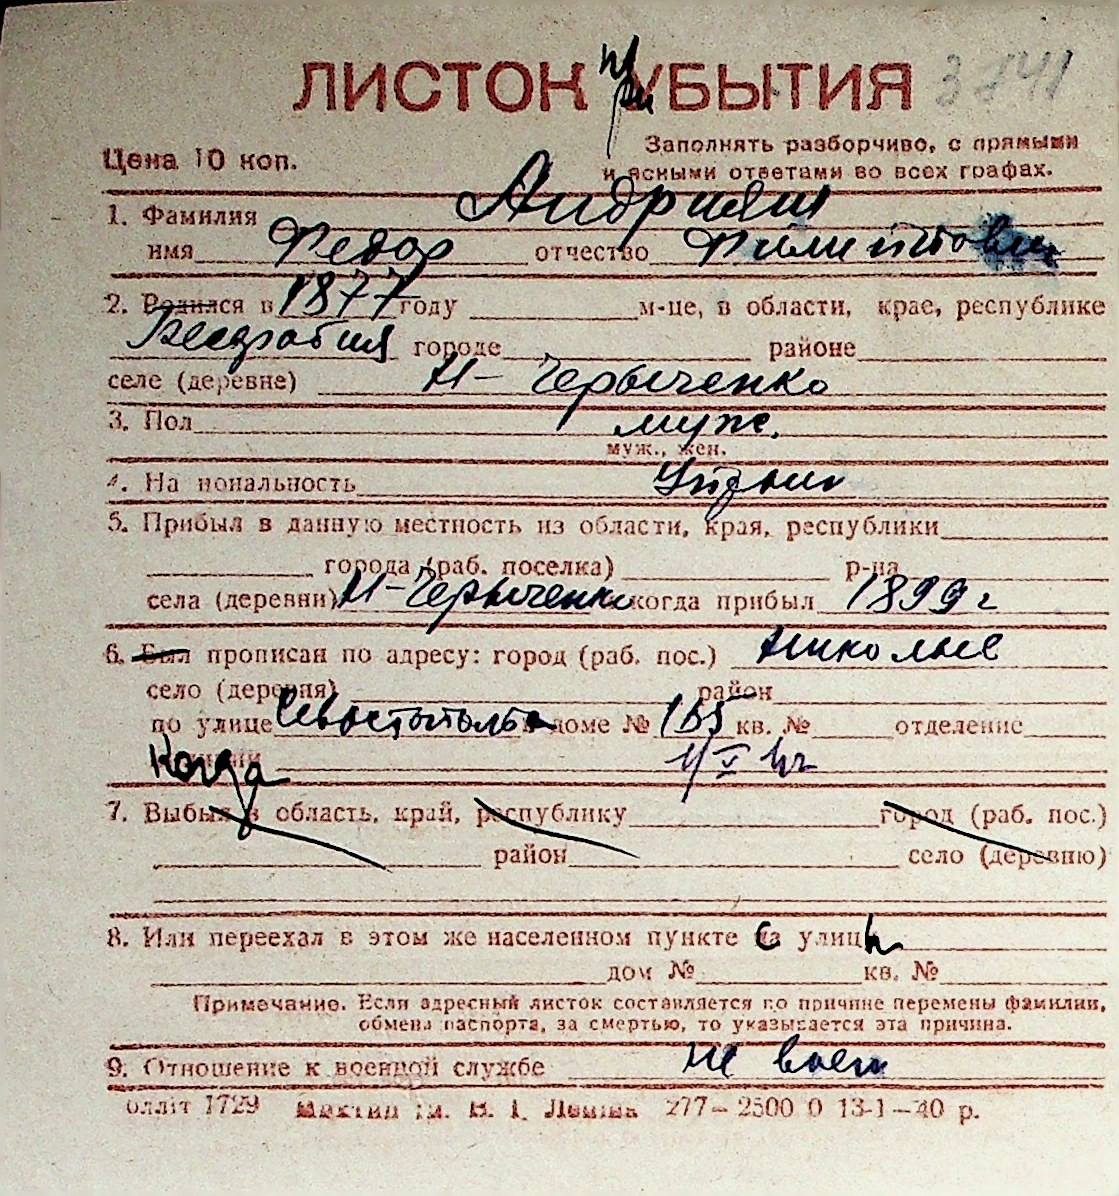 ЛИСТОК при УБЫТИЯ 3741
Цена 10 коп.
Заполнять разборчиво, с прямыми
и ясными ответами во всех графах.
1. Фамилия Андрияш
имя Федор отчество Филиппович
2. Родился в 1877 году м-це, в области, крае, республике
Бессрабия городе районе
селе (деревне) Н-Черыченко
3. Пол муж.
муж., жен.
4. На иональность Украин
5. Прибыл в данную местность из области, края, республики
города (раб. поселка) р-на
села (деревни) Н-Черыченко когда прибыл 1899 г
6. Был прописан по адресу: город (раб. пос.) Николаев
село (деревня) район
по улице доме № 155 кв. № отделение
Когда 1/V
7. Выбыл в область, край, республику город (раб. пос.)
район село (деревню)
8. Или переехал в этом же населенном пункте с улицы
дом № кв. №
Примечание. Если адресный листок составляется по причине перемены фамилии,
обмена паспорта, за смертью, то указывается эта причина.
9. Отношение к военной службе не воен
блліт 1729 277—2500 0 13-1—40 р.